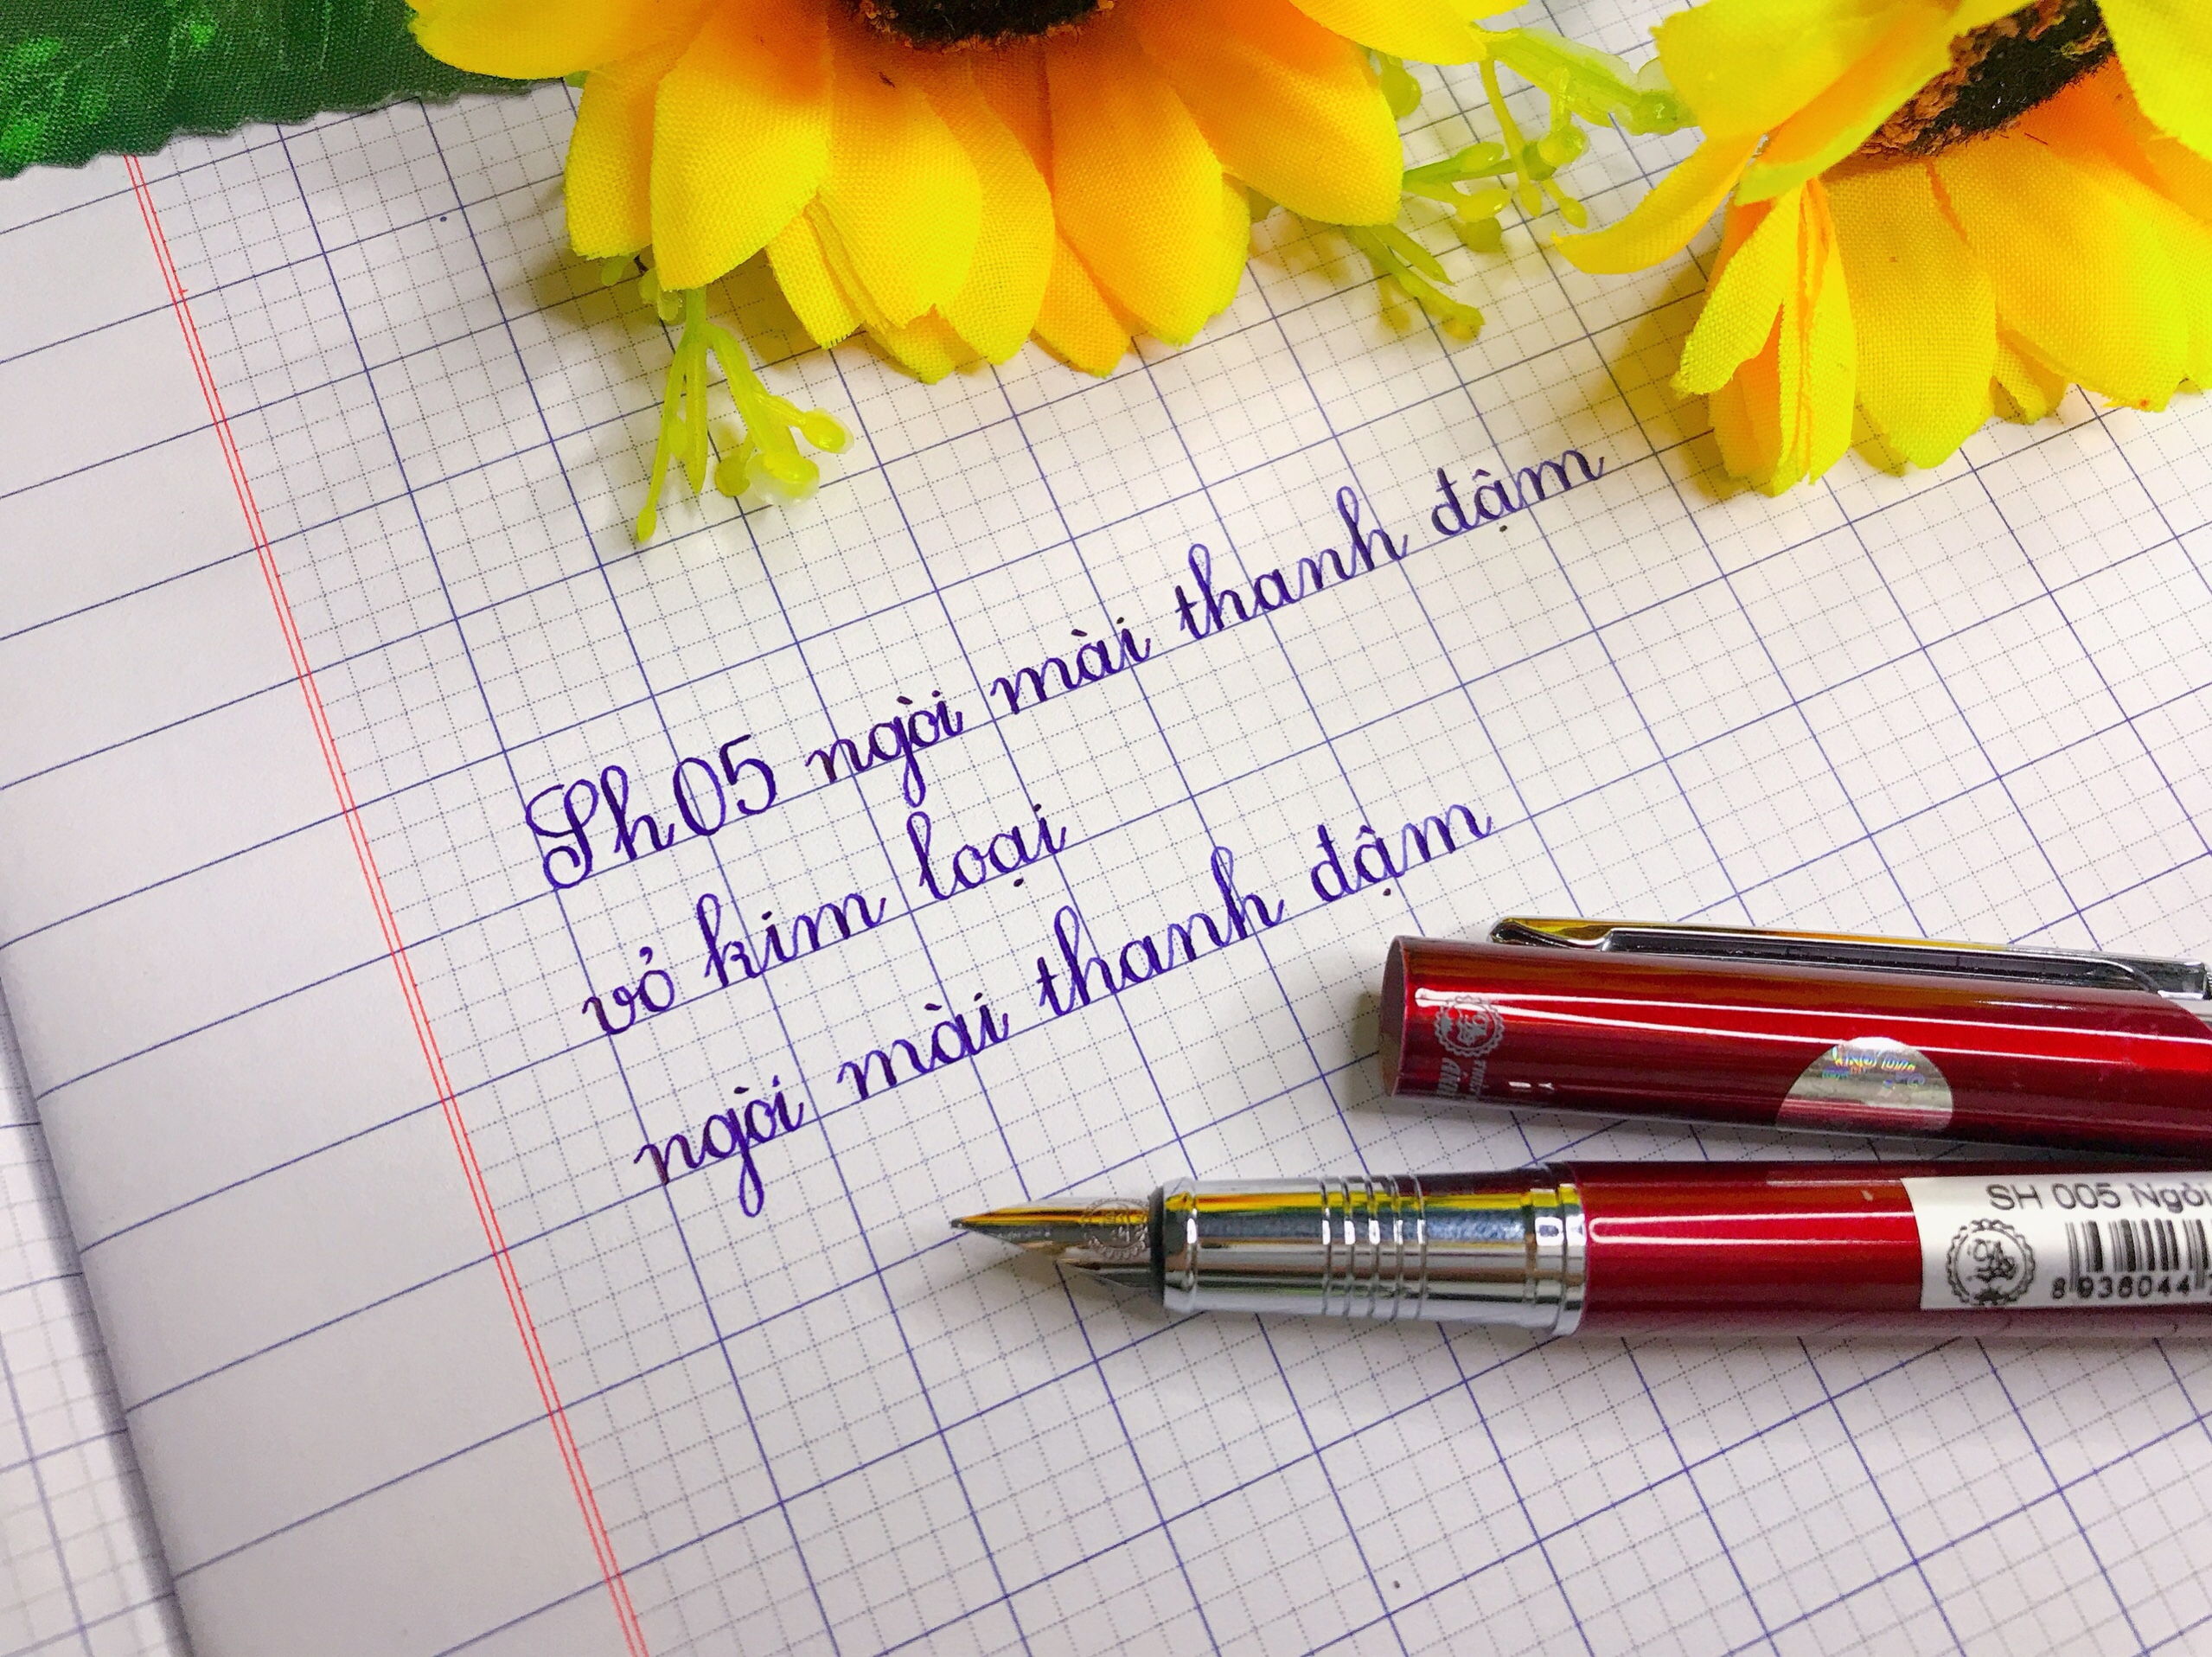 Sh05 ngòi mài thanh đậm
vỏ kim loại
ngòi mài thanh đậm
ÁNH
SH 005 Ngòi
8 936044